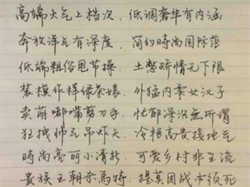 高端大气上档次，低调奢华有内涵
奔放洋气有深度，简约时尚国际范
低端粗俗甩节操，土憋矫情无下限
装模作样绿茶婊，外猛内柔女汉子
卖萌嘟嘴剪刀手，忧郁深沉无所谓
狂拽帅气吊炸天，冷艳高贵接地气
時尚亮丽小清新，可爱乡村非主流
贵族王朝杀馬特，提莫团战